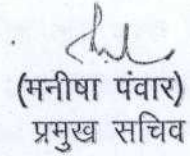 (मनीषा पंवार)
प्रमुख सचिव